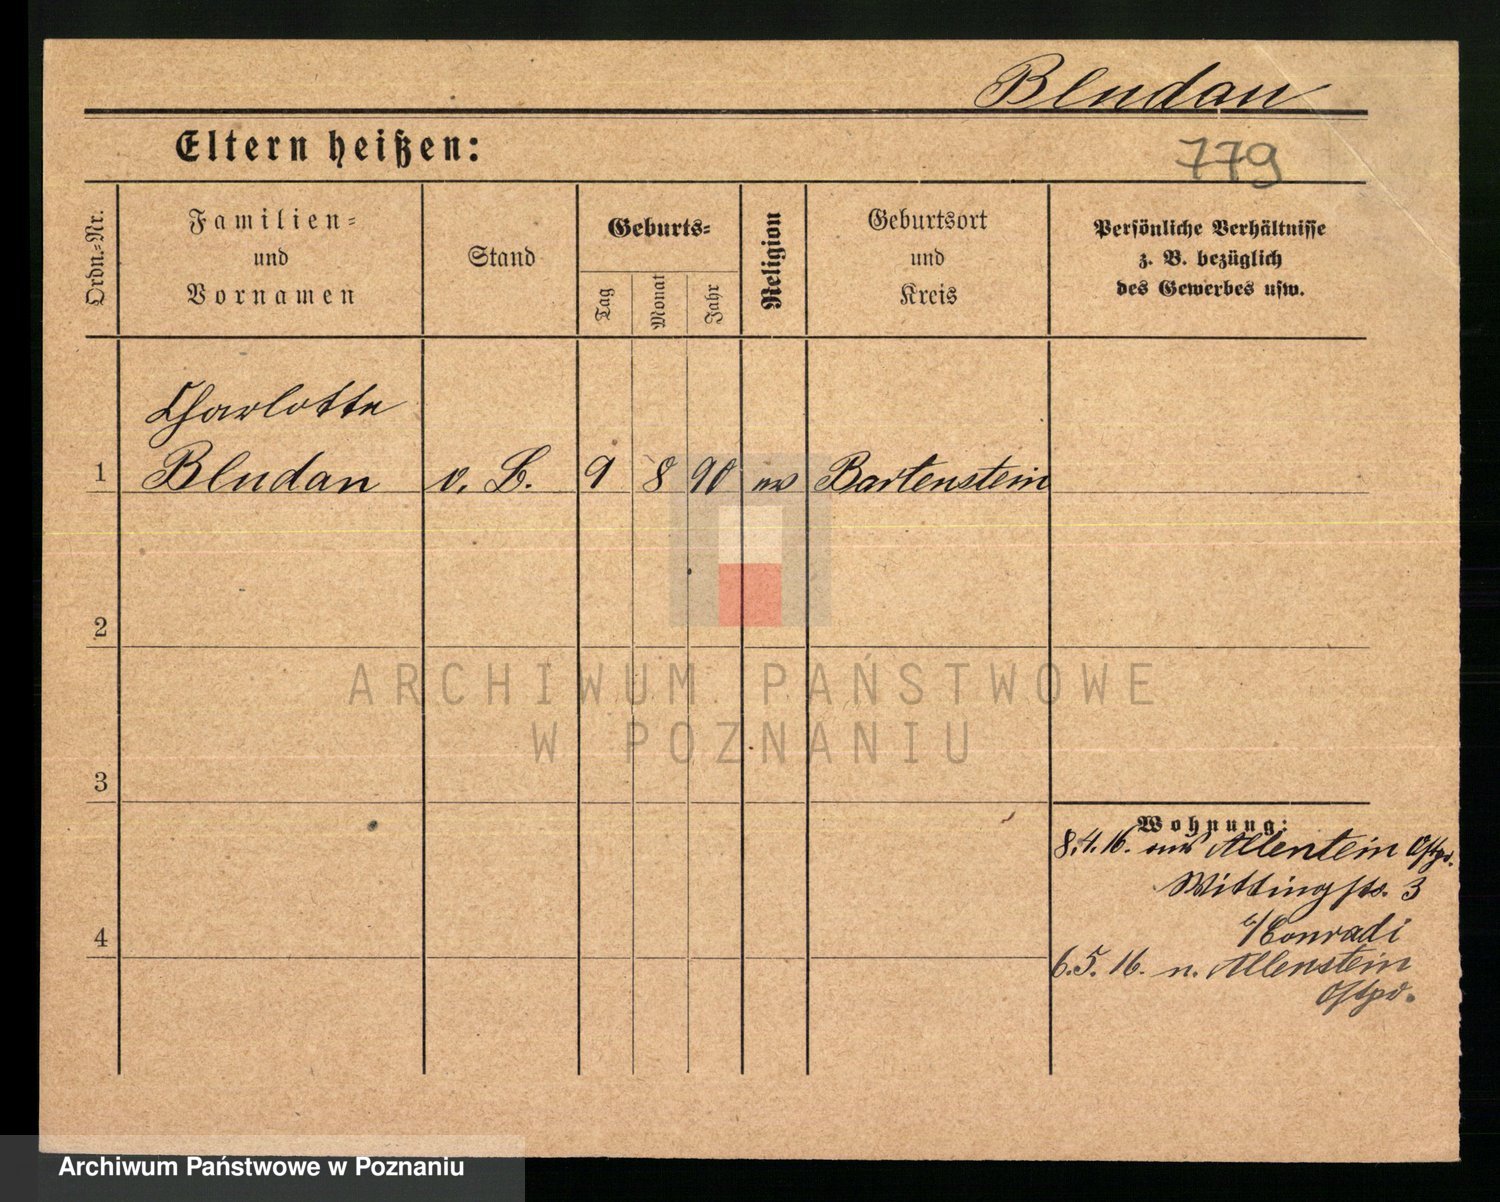 Bludau
Eltern heißen:
779
Ordn.-Nr.
Familien-
und
Vornamen
Stand
Geburts-
Tag
Monat
Jahr
Religion
Geburtsort
und
Kreis
Persönliche Verhältnisse
z. B. bezüglich
des Gewerbes usw.
Charlotte
1 Bludau o. B. 9 8 90 ev Bartenstein
2
ARCHIWUM PAŃSTWOWE
W POZNANIU
3
Wohnung:
8.4.16. aus Allenstein Ostpr.
Wittingstr. 3
b/Conradi
4
6.5.16. n. Allenstein
Ostpr.
Archiwum Państwowe w Poznaniu